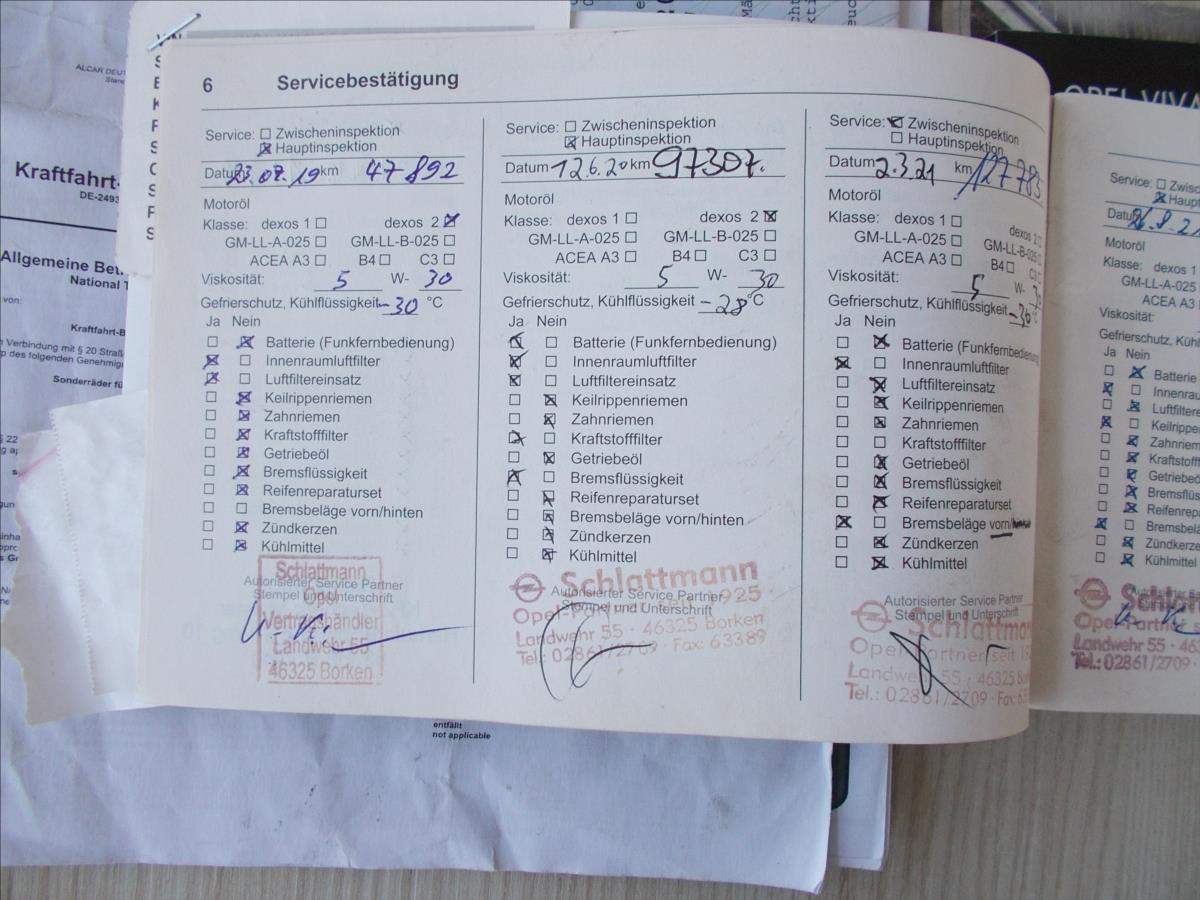 ALCAR DEUT
Kraftfahrt-
DE-2493
Allgemeine Bet
National T
von:
Kraftfahrt-B
Verbindung mit § 20 Straß
des folgenden Genehmig
Sonderräder fü
entfällt
not applicable
OPEL VIVA
6 Servicebestätigung
Service: Zwischeninspektion
Hauptinspektion
Datum 23.07.19 km 47892
Motoröl
Klasse: dexos 1 dexos 2
GM-LL-A-025 GM-LL-B-025
ACEA A3 B4 C3
Viskosität: 5 W- 30
Gefrierschutz, Kühlflüssigkeit -30 °C
Ja Nein
Batterie (Funkfernbedienung)
Innenraumluftfilter
Luftfiltereinsatz
Keilrippenriemen
Zahnriemen
Kraftstofffilter
Getriebeöl
Bremsflüssigkeit
Reifenreparaturset
Bremsbeläge vorn/hinten
Zündkerzen
Kühlmittel
Autorisierter Service Partner
Stempel und Unterschrift
Schlattmann
Opel
Vertragshändler
Landwehr 55
46325 Borken
Service: Zwischeninspektion
Hauptinspektion
Datum 12.6.20 km 97307.
Motoröl
Klasse: dexos 1 dexos 2
GM-LL-A-025 GM-LL-B-025
ACEA A3 B4 C3
Viskosität: 5 W- 30
Gefrierschutz, Kühlflüssigkeit -28 °C
Ja Nein
Batterie (Funkfernbedienung)
Innenraumluftfilter
Luftfiltereinsatz
Keilrippenriemen
Zahnriemen
Kraftstofffilter
Getriebeöl
Bremsflüssigkeit
Reifenreparaturset
Bremsbeläge vorn/hinten
Zündkerzen
Kühlmittel
Autorisierter Service Partner
Stempel und Unterschrift
Schlattmann
Landwehr 55 · 46325 Borken
Tel.: 02861/2709 · Fax: 63389
Service: Zwischeninspektion
Hauptinspektion
Datum 2.3.21 km 127783
Motoröl
Klasse: dexos 1 dexos 2
GM-LL-A-025 GM-LL-B-025
ACEA A3 B4 C3
Viskosität: 5 W- 30
Gefrierschutz, Kühlflüssigkeit -30 °C
Ja Nein
Batterie (Funkfernbedienung)
Innenraumluftfilter
Luftfiltereinsatz
Keilrippenriemen
Zahnriemen
Kraftstofffilter
Getriebeöl
Bremsflüssigkeit
Reifenreparaturset
Bremsbeläge vorn/
Zündkerzen
Kühlmittel
Autorisierter Service Partner
Stempel und Unterschrift
Schlattmann
Opel Partner seit
Landwehr 55 · 46325 Bork
Tel.: 02861/2709 · Fax: 6
Service: Z
Haupt
Motoröl
Klasse: dexos 1
GM-LL-A-025
ACEA A3
Viskosität:
Gefrierschutz, Kühl
Ja Nein
Batterie
Innenrau
Luftfilte
Keilripp
Zahnriem
Kraftstoff
Getriebeö
Bremsflüs
Reifenrepa
Bremsbelä
Zündkerze
Kühlmittel
Schlatt
Opel Partner s
Landwehr 55 · 46
Tel.: 02861/2709